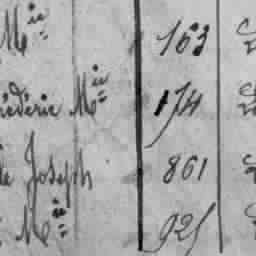 Mie 163
rédéric Mie 174
le Joseph 861
Mie 921